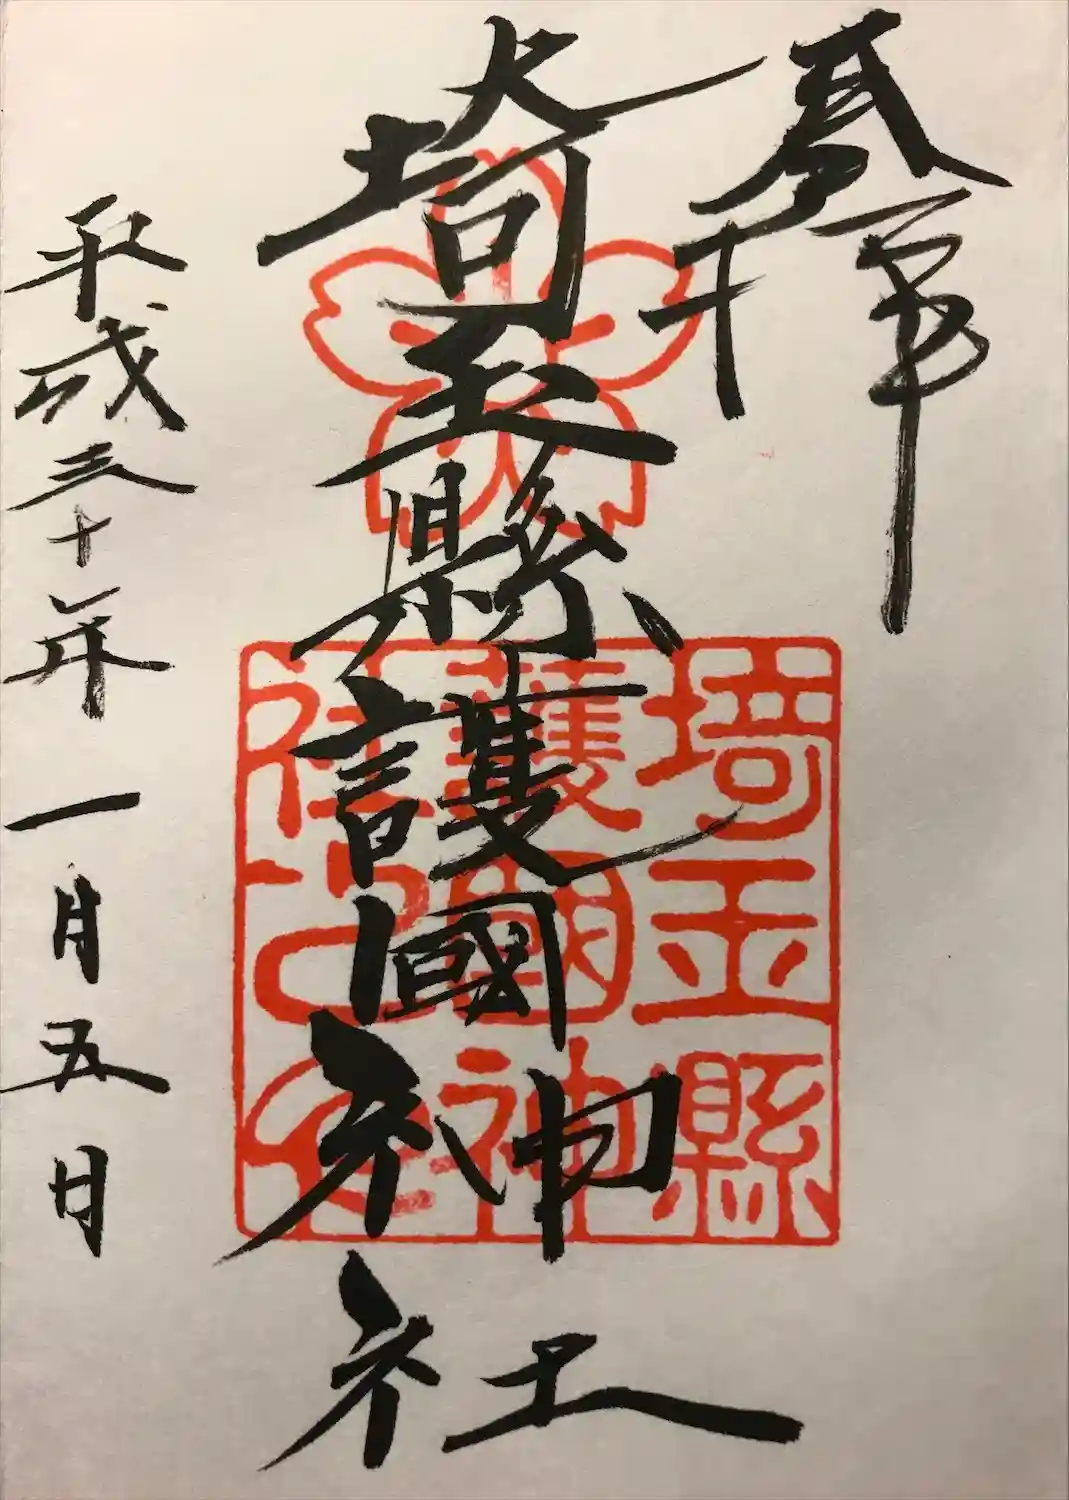 奉拝
埼玉縣護國神社
平成三十年一月五日
埼玉縣
護國神
社之印